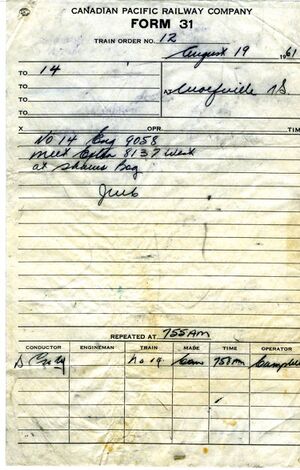 CANADIAN PACIFIC RAILWAY COMPANY
FORM 31
TRAIN ORDER NO. 12
August 19 1961
TO 14
TO
TO
TO
AT NS
X OPR. TIM
No 14 Eng 9058
meet Extra 8137 West
at Shaws Bog
REPEATED AT 755AM
CONDUCTOR ENGINEMAN TRAIN MADE TIME OPERATOR
No 14 Com 758AM Campbell